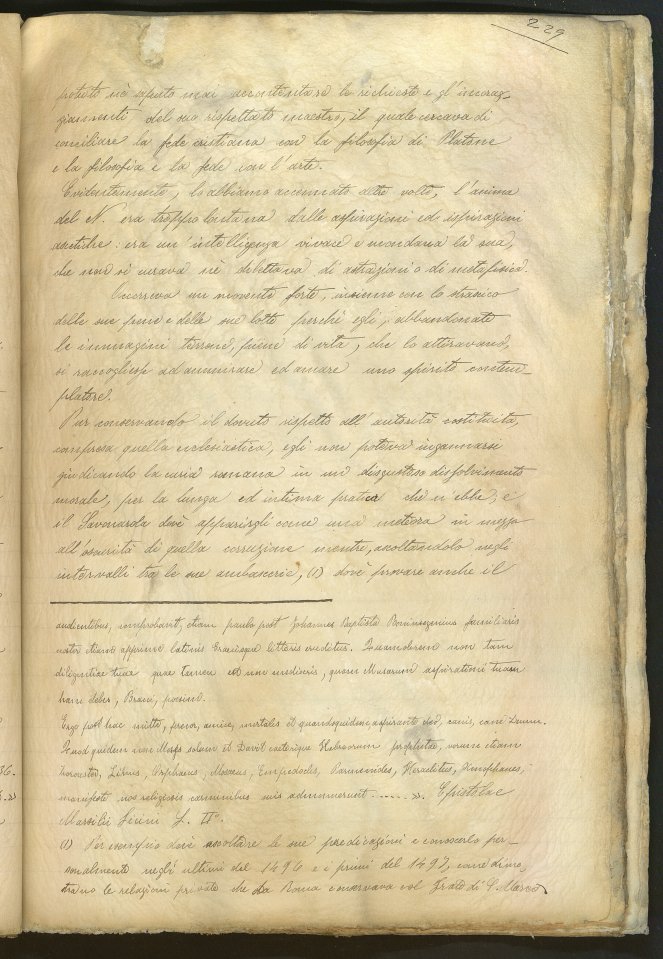 229
potuto nè saputo mai accontentare le richieste e gl'incorag-
giamenti del suo rispettato maestro, il quale cercava di
conciliare la fede cristiana con la filosofia di Platone
e la filosofia e la fede con l'arte.
Evidentemente, lo abbiamo accennato altre volte, l'anima
del N. era troppo lontana dalle aspirazioni ed ispirazioni
: era un'intelligenza vivace e mondana la sua,
che non si curava nè dilettava di astrazioni o di metafisica.
Occorreva un movente forte, insieme con lo strazio
delle sue pene e delle sue lotte perchè egli, abbandonate
le immagini terrene, piene di vita, che lo attiravano,
si raccogliesse ad ammirare ed amare uno spirito contem-
platore.
Pur conservando il dovuto rispetto all'autorità costituita,
compresa quella ecclesiastica, egli non poteva ingannarsi
giudicando la curia romana in un disgustoso dissolvimento
morale, per la lunga ed intima pratica che n'ebbe; e
il Savonarola dovè apparirgli come una meteora in mezzo
all'oscurità di quella corruzione mentre, ascoltandolo negli
intervalli tra le sue ambascerie, (1) dovè provare anche il
audientibus, comprobavit, etiam paulo post Johannes Baptista Boninsegnius familiaris
noster etiam apprime latinis Graecisque litteris eruditus. non tam
diligentiae tuae quae tamen est non mediocris, quam Musarum aspirationi tuam
hanc debes, Braci, poesim.
Ergo post hac mitte, precor, amice, mortales et quandoquidem aspirante deo, canis, cane Deum.
quidem non Moses solum et David caeterique Hebraeorum prophetae, verum etiam
Zoroaster, Linus, Orphaeus, Musaeus, Empedocles, Parmenides, Heraclitus, Xenophanes,
manifeste nos religiosis carminibus suis admonuerunt ...... ». Epistolae
Marsilii Ficini L. II°.
(1) Per esempio dovè ascoltare le sue predicazioni e conoscerlo per-
sonalmente negli ultimi del 1496 e i primi del 1497, come dimo-
strano le relazioni private che da Roma conservava col Frate di S. Marco
36.
»